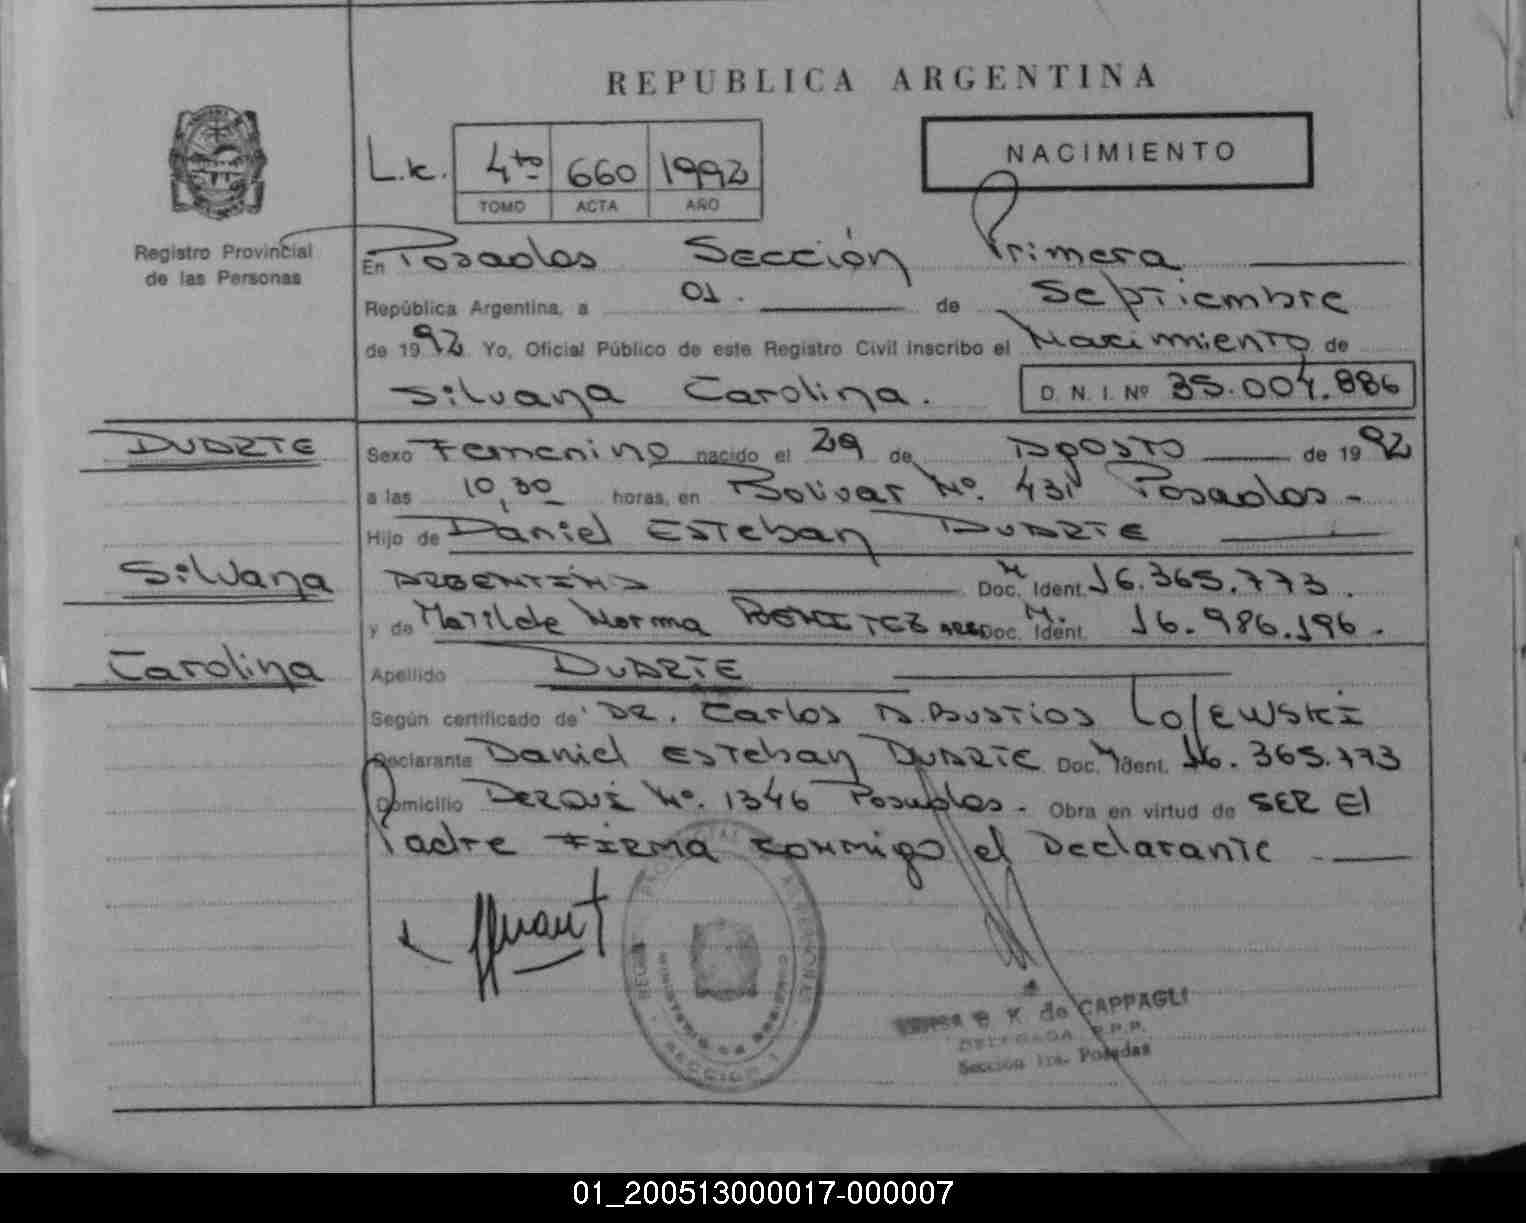 REPUBLICA ARGENTINA
NACIMIENTO
L.k. 4to 660 1992
TOMO ACTA AÑO
Registro Provincial
de las Personas
En Posadas Sección Primera
República Argentina, a 01. de Septiembre
de 1992 Yo, Oficial Público de este Registro Civil inscribo el Nacimiento de
Silvana Carolina. D. N. I. Nº 35.004.886
DUARTE
Sexo Femenino nacido el 29 de Agosto de 1992
a las 10,30 horas, en Bolivar Nº. 431 Posadas -
Hijo de Daniel Esteban DUARTE
Silvana
ARGENTINA Doc. M Ident. 16.365.773.
y de Matilde Norma BENITEZ ARG Doc. M. Ident. 16.986.196.
Carolina
Apellido DUARTE
Según certificado de DR. Carlos A. Bustios
Declarante Daniel Esteban DUARTE Doc. M Ident. 16.365.773
Domicilio DERQUI Nº. 1346 Posadas. Obra en virtud de SER El
Padre FIRMA CONMIGO el Declarante
B K de CAPPAGLI
DELEGADA R.P.P.
Sección 1ra. Posadas
SECCION 1
01_200513000017-000007